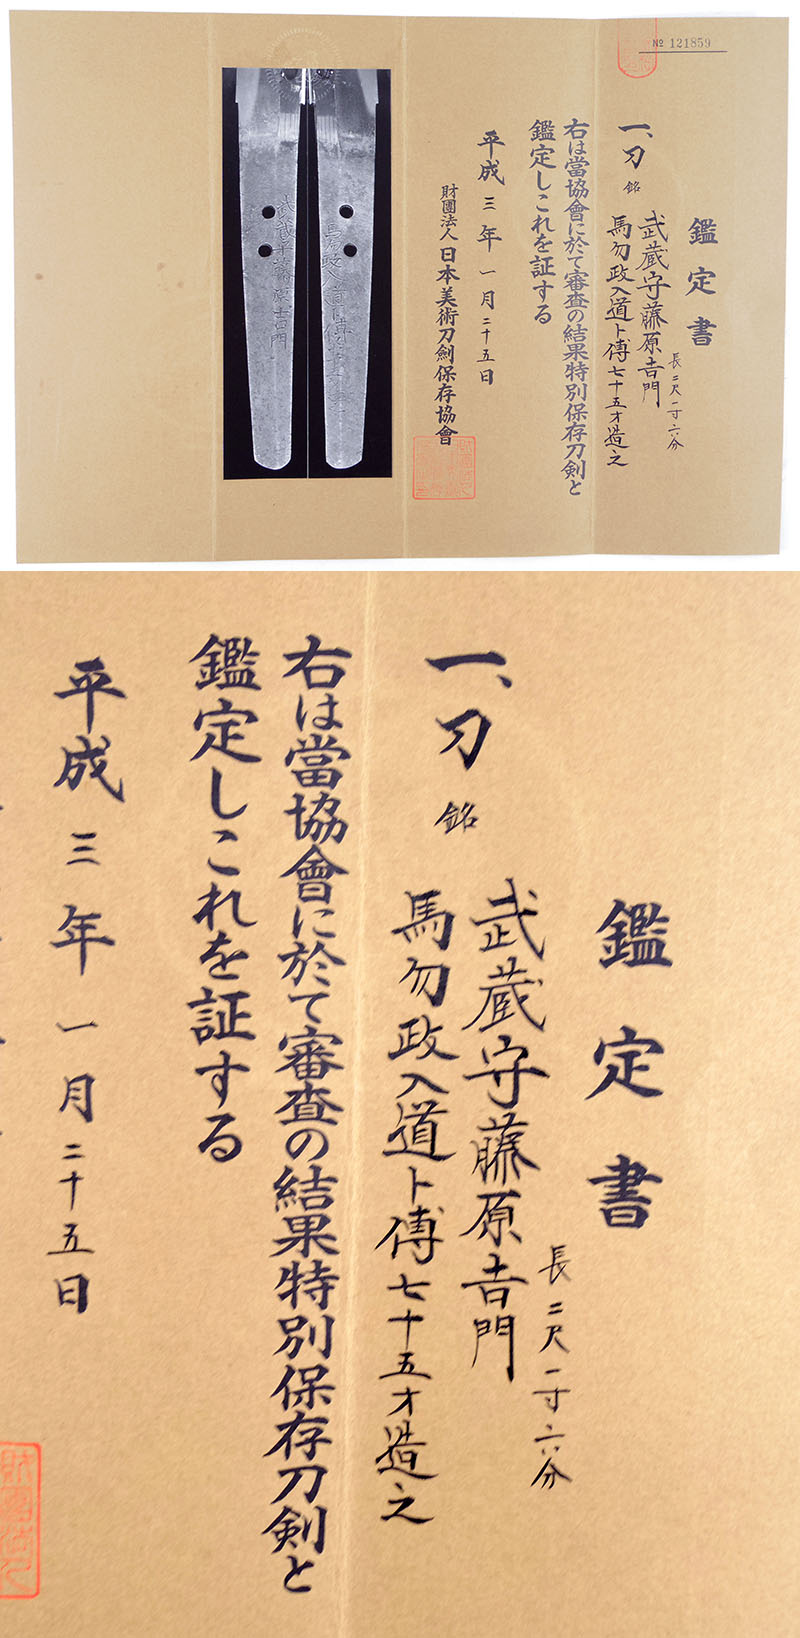 № 121859
鑑定書
長二尺一寸六分
一、刀 銘
武蔵守藤原吉門
馬勿政入道ト傅七十五才造之
右は當協會に於て審査の結果特別保存刀剣と
鑑定しこれを証する
平成三年一月二十五日
財團法人日本美術刀劍保存協會
鑑定書
長二尺一寸六分
一、刀 銘
武蔵守藤原吉門
馬勿政入道ト傅七十五才造之
右は當協會に於て審査の結果特別保存刀剣と
鑑定しこれを証する
平成三年一月二十五日